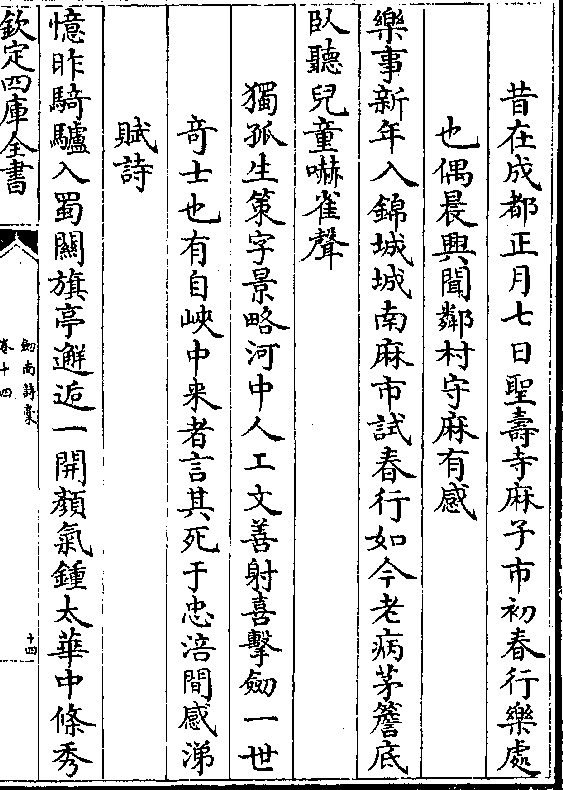 昔在成都正月七日聖壽寺麻子市初春行樂處
也偶晨興聞鄰村守麻有感
樂事新年入錦城城南麻市試春行如今老病茅簷底
臥聽兒童嚇雀聲
獨孤生策字景略河中人工文善射喜擊劒一世
竒士也有自峽中来者言其死于忠涪間感涕
賦詩
憶昨騎驢入蜀關旗亭邂逅一開顏氣鍾太華中條秀
欽定四庫全書
劒南詩稾
卷十四
十四